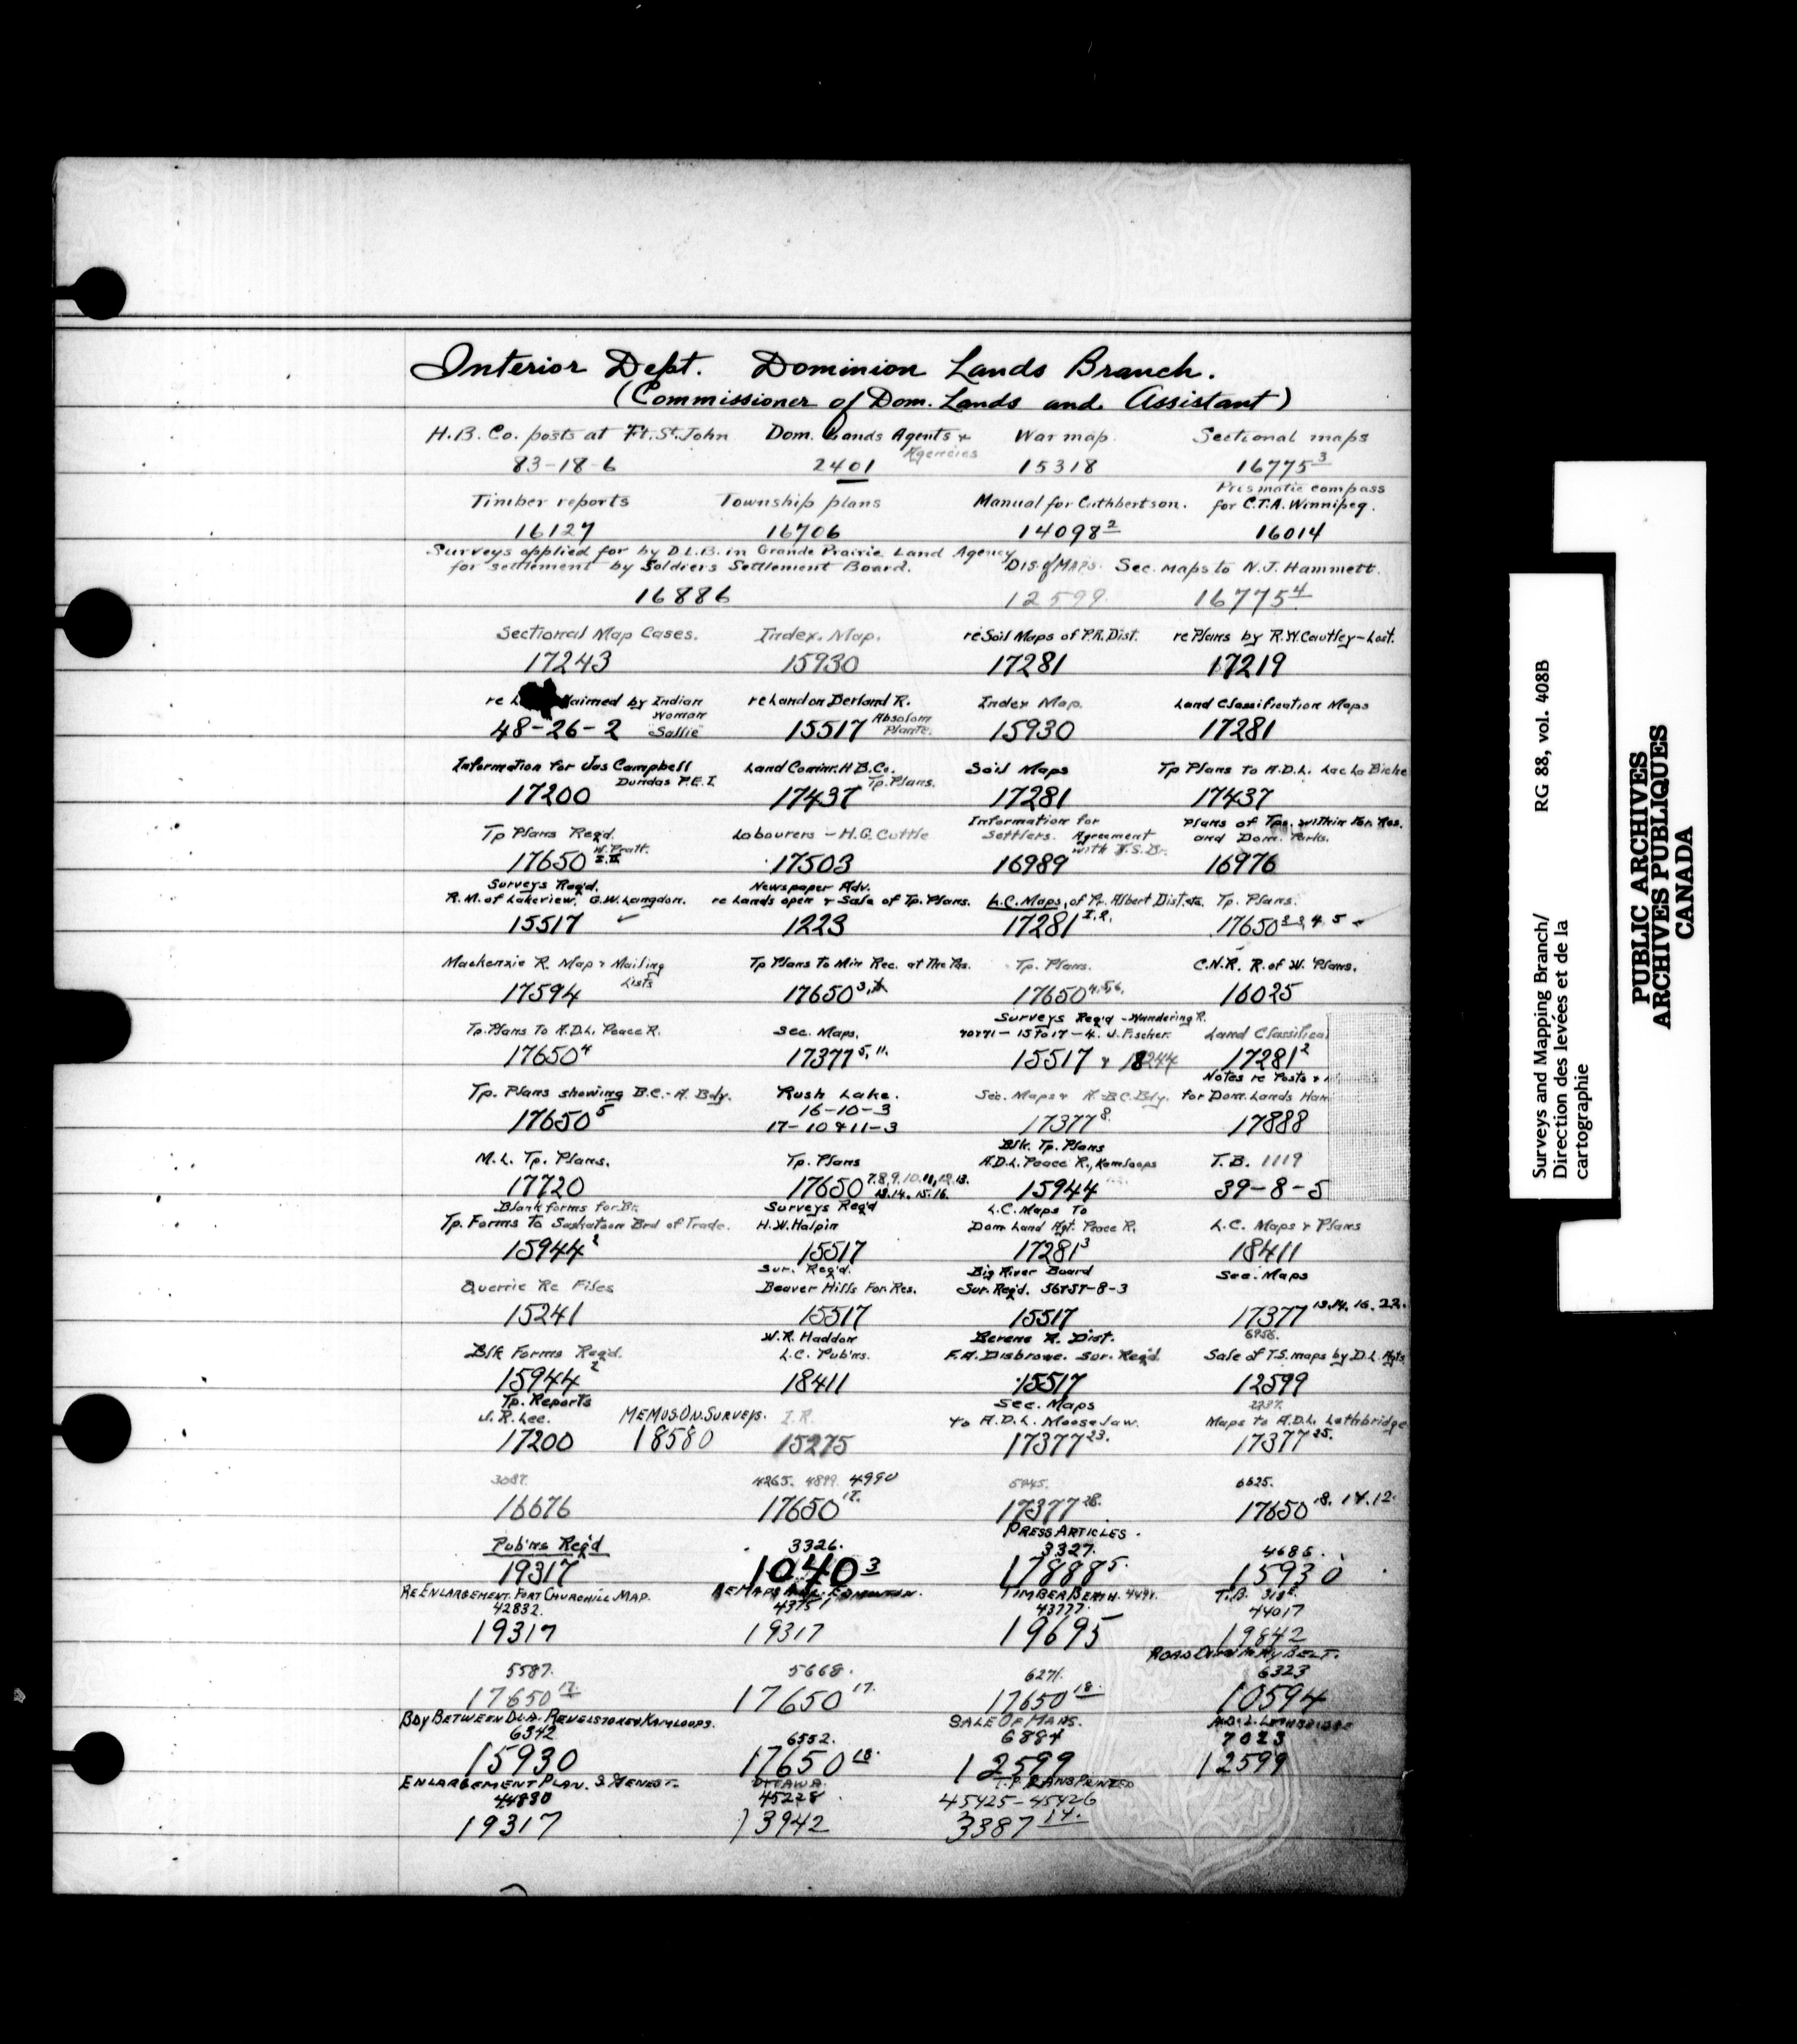 Interior Dept. Dominion Lands Branch.
(Commissioner of Dom. Lands and Assistant)
H.B. Co. posts at Ft. St. John Dom. Lands Agents & Agencies War map. Sectional maps
83-18-6 2401 15318 16775 3
Timber reports Township plans Manual for Cuthbertson. Prismatic compass for C.T.A. Winnipeg.
16127 16706 14098 2 16014
Surveys applied for by D.L.B. in Grande Prairie Land Agency
for settlement by Soldiers Settlement Board. Dis. of Maps. Sec. maps to N.J. Hammett.
16886 12599 16775 4
Sectional Map Cases. Index. Map. re Soil Maps of P.R. Dist. re Plans by R.W. Cautley-Lost.
17243 15930 17281 17219
re claimed by Indian Woman "Sallie" re Land on Berland R. Index Map. Land Classification Maps
48-26-2 15517 Absolom Plante. 15930 17281
Information for Jas Campbell Dundas P.E.I. Land Commr. H.B. Co. Tp. Plans. Soil Maps Tp Plans to A.D.L. Lac La Biche
17200 17437 17281 17437
Tp Plans Req'd. W. Pratt. Labourers - H.G. Cuttle Information for Settlers. Agreement with Plans of Tps. within For. Res. and Dom. Parks.
17650 17503 16989 16976
Surveys Req'd. Newspaper Adv.
R.M. of Lakeview, G.W. Langdon. re Lands open & Sale of Tp. Plans. L.C. Maps, of Pr. Albert Dist. etc. Tp. Plans.
15517 ✓ 1223 17281 1.2. 17650 2 3 4 5
Mackenzie R. Map & Mailing Lists Tp Plans to Min Rec. at The Pas. Tp. Plans. C.N.R. R. of W. Plans.
17594 17650 3, 17650 4.5.6. 16025
Tp. Plans to A.D.L. Peace R. Sec. Maps. Surveys Req'd - Wandering R. 70&71 - 15 to 17 - 4. J. Fischer. Land Classifica
17650 4 17377 5, 11. 15517 & 18244 17281 2
Tp. Plans showing B.C.-A. Bdy. Rush Lake. Sec. Maps & A-B.C. Bdy. Notes re Posts & for Dom. Lands Han
17650 5 16-10-3 17377 8. 17888
17-10&11-3
M.L. Tp. Plans. Tp. Plans Blk. Tp. Plans A.D.L. Peace R., Kamloops T.B. 1119
17720 17650 7.8.9.10.11,12.13. 13.14.15.16. 15944 39-8-5
Blank forms for Br. Surveys Req'd L.C. Maps To
Tp. Forms To Saskatoon Brd of Trade. H.W. Halpin Dom Land Agt. Peace R. L.C. Maps & Plans
15944 2 15517 17281 3 18411
Querrie Re Files Sur. Req'd. Beaver Hills For. Res. Big River Board Sur. Req'd. 56&57-8-3 Sec. Maps
15241 15517 15517 17377 13.14.16.22.
Blk Forms Req'd. W.R. Haddon L.C. Pub'ns. Berens R. Dist. F.A. Disbrowe. Sur. Req'd. 6956. Sale of T.S. maps by D.L. Agts
15944 2 18411 15517 12599
Tp. Reports J.R. Lee. Memos. On. Surveys. I.R. Sec. Maps to A.D.L. Moose Jaw. 2237. Maps to A.D.L. Lethbridge
17200 18580 15275 17377 23. 17377 25.
3087. 4265. 4899. 4990 5945. 6625.
16676 17650 17. 17377 28. 17650 18. 14. 12.
Pub'ns Req'd 3326. Press Articles. 3327. 4685.
19317 1040 3 17888 5. 15930
Re Enlargement. Fort Churchill Map. Re Maps A.D.L. Edmonton. Timber Berth. 4491. T.B.
42832. 43751 43777. 44017
19317 19317 19695 19842
Road Ry Belt.
5587. 5668. 6271. 6323
17650 17. 17650 17. 17650 18. 10594
Bdy Between D.L.A. Revelstoke & Kamloops. Sale Of Maps. A.D.L. Lethbridge
6342 6552. 6884 7023
15930 17650 18. 12599 12599
Enlargement Plan. Ottawa. T.P. Plans Printed
44830 45228 45425-45426
19317 13942 3387 14.
Surveys and Mapping Branch/ RG 88, vol. 408B
Direction des levées et de la
cartographie
PUBLIC ARCHIVES
ARCHIVES PUBLIQUES
CANADA